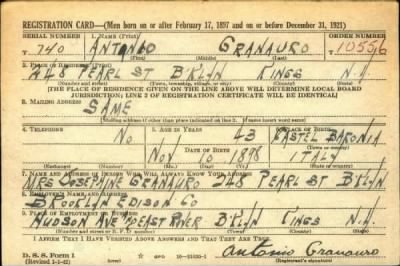 REGISTRATION CARD—(Men born on or after February 17, 1897 and on or before December 31, 1921)
SERIAL NUMBER 1. NAME (Print) ORDER NUMBER
T 740 ANTONGO GRANAURO 10556
(First) (Middle) (Last)
2. PLACE OF RESIDENCE (Print)
248 PEARL ST B'KLYN KINGS N.Y.
(Number and street) (Town, township, village, or city) (County) (State)
[THE PLACE OF RESIDENCE GIVEN ON THE LINE ABOVE WILL DETERMINE LOCAL BOARD
JURISDICTION; LINE 2 OF REGISTRATION CERTIFICATE WILL BE IDENTICAL]
3. MAILING ADDRESS
SAME
[Mailing address if other than place indicated on line 2. If same insert word same]
4. TELEPHONE 5. AGE IN YEARS 6. PLACE OF BIRTH
No 43 CASTEL BARONIA
DATE OF BIRTH (Town or county)
NOV 10 1898 ITALY
(Exchange) (Number) (Mo.) (Day) (Yr.) (State or country)
7. NAME AND ADDRESS OF PERSON WHO WILL ALWAYS KNOW YOUR ADDRESS
MRS JOSEPHINE GRANAURO 248 PEARL ST B'KLYN
8. EMPLOYER'S NAME AND ADDRESS
BROOKLYN EDISON CO
9. PLACE OF EMPLOYMENT OR BUSINESS
HUDSON AVE & EAST RIVER B'KLYN KINGS N.Y.
(Number and street or R. F. D. number) (Town) (County) (State)
I AFFIRM THAT I HAVE VERIFIED ABOVE ANSWERS AND THAT THEY ARE TRUE.
D. S. S. Form 1 GPO
(Revised 1-1-42) Antonio Granauro
(Registrant's signature)